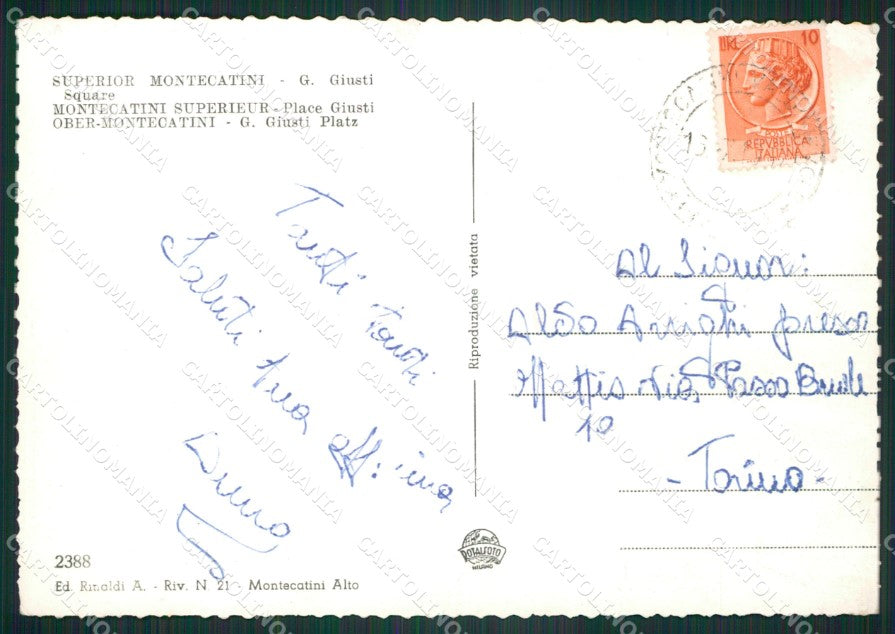 SUPERIOR MONTECATINI - G. Giusti
Square
MONTECATINI SUPERIEUR - Place Giusti
OBER-MONTECATINI - G. Giusti Platz
LIRE 10
POSTE
REPVBBLICA
ITALIANA
Tanti Tanti
Saluti tua
aff: ima
Riproduzione vietata
Al Signor:
Aldo Arrighi presso
Mattis Via Passo Buole
10
- Torino -
ROTALFOTO
MILANO
2388
Ed. Rinaldi A. - Riv. N 21 - Montecatini Alto
CARTOLINOMANIA